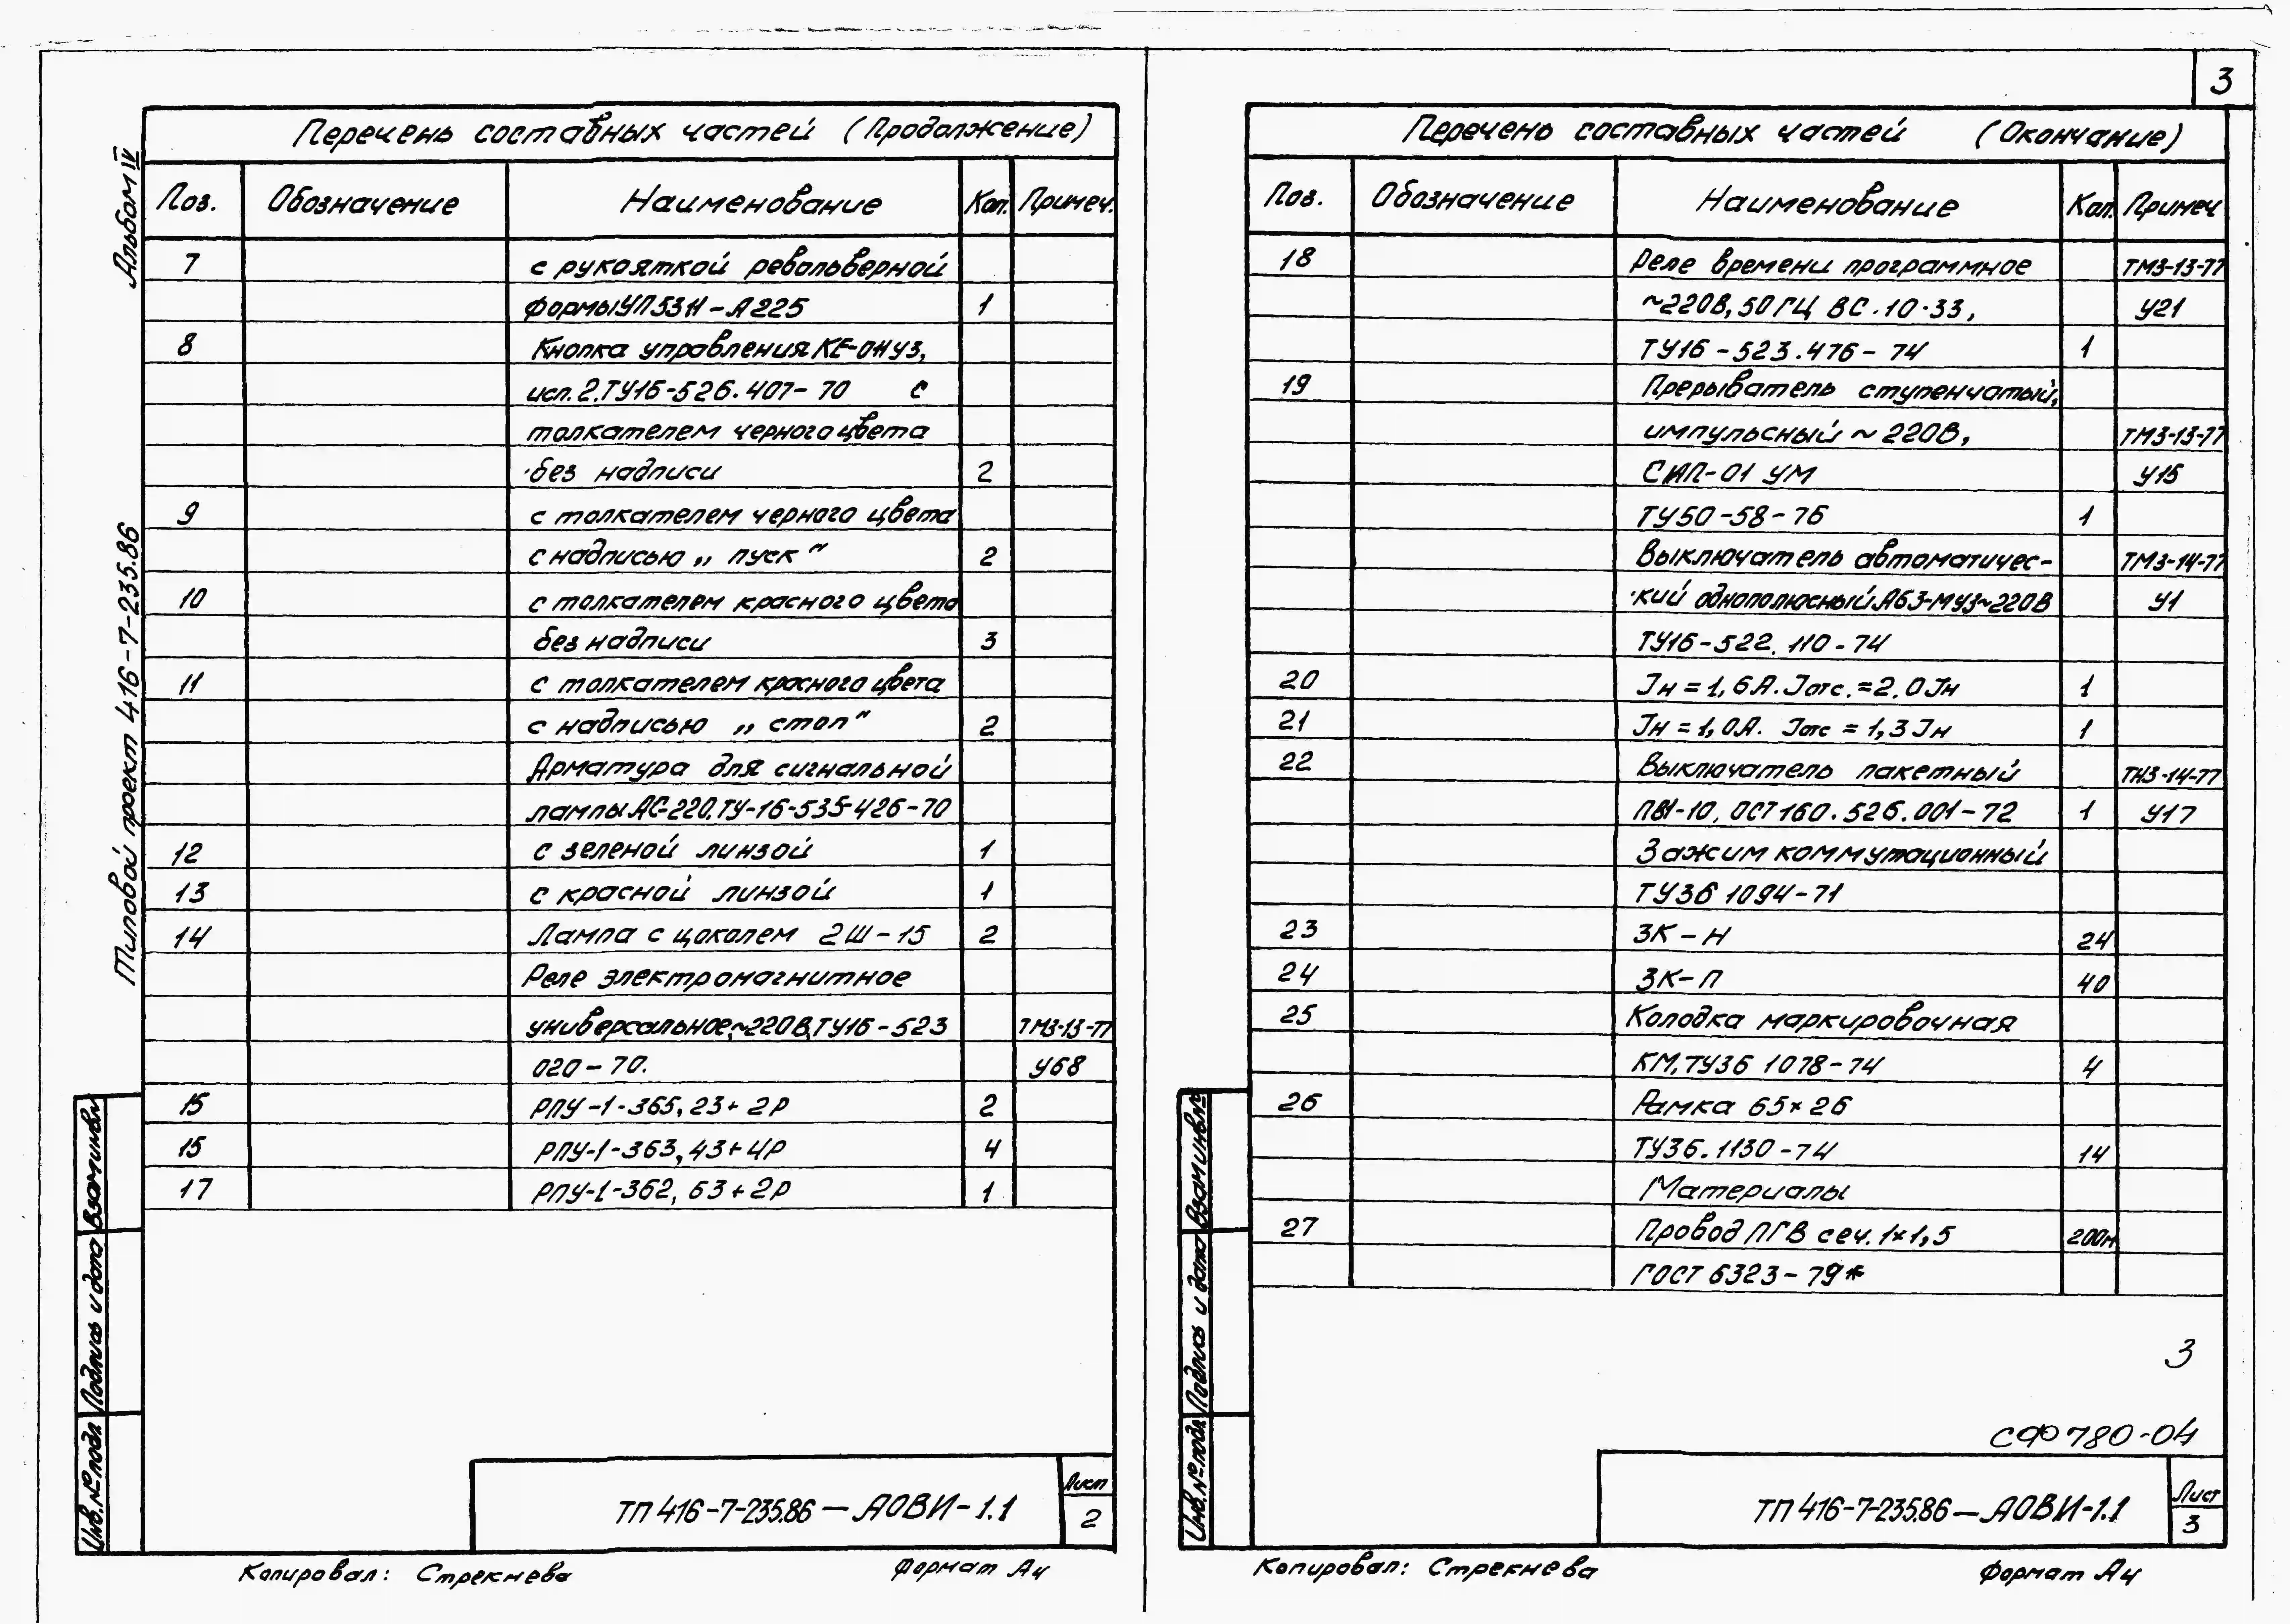 Альбом IV
Типовой проект 416-7-235.86
Перечень составных частей (Продолжение)
Поз. Обозначение Наименование Кол. Примеч.
7 с рукояткой револьверной
формы УП5311-А225 1
8 Кнопка управления КЕ-011У3,
исп.2.ТУ16-526.407-70 с
толкателем черного цвета
без надписи 2
9 с толкателем черного цвета
с надписью „пуск" 2
10 с толкателем красного цвета
без надписи 3
11 с толкателем красного цвета
с надписью „стоп" 2
Арматура для сигнальной
лампы АС-220.ТУ-16-535-426-70
12 с зеленой линзой 1
13 с красной линзой 1
14 Лампа с цоколем 2Ш-15 2
Реле электромагнитное
универсальное,~220В,ТУ16-523 ТМ3-13-77
020-70. У68
15 РПУ-1-365, 23+2Р 2
15 РПУ-1-363, 43+4Р 4
17 РПУ-1-362, 63+2Р 1
Взам.инв.№
Подпись и дата
Инв.№ подл.
ТП 416-7-235.86-АОВИ-1.1
Лист
2
Копировал: Стрекнева Формат А4
3
Перечень составных частей (Окончание)
Поз. Обозначение Наименование Кол. Примеч
18 Реле времени программное ТМ3-13-77
~220В, 50ГЦ ВС-10-33, У21
ТУ16-523.476-74 1
19 Прерыватель ступенчатый,
импульсный ~220В, ТМ3-13-77
СИП-01 УМ У15
ТУ50-58-76 1
Выключатель автоматичес- ТМ3-14-77
кий однополюсный А63-МУ3~220В У1
ТУ16-522.110-74
20 Jн=1,6А. Jотс.=2.0Jн 1
21 Jн=1,0А. Jотс=1,3Jн 1
22 Выключатель пакетный ТМ3-14-77
ПВ1-10, ОСТ160.526.001-72 1 У17
Зажим коммутационный
ТУ36 1094-71
23 ЗК-Н 24
24 ЗК-П 40
25 Колодка маркировочная
КМ,ТУ36 1078-74 4
26 Рамка 65×26
ТУ36.1130-74 14
Материалы
27 Провод ПГВ сеч. 1×1,5 200м
ГОСТ 6323-79*
3
СФ780-04
Взам.инв.№
Подпись и дата
Инв.№ подл.
ТП 416-7-235.86-АОВИ-1.1
Лист
3
Копировал: Стрекнева Формат А4